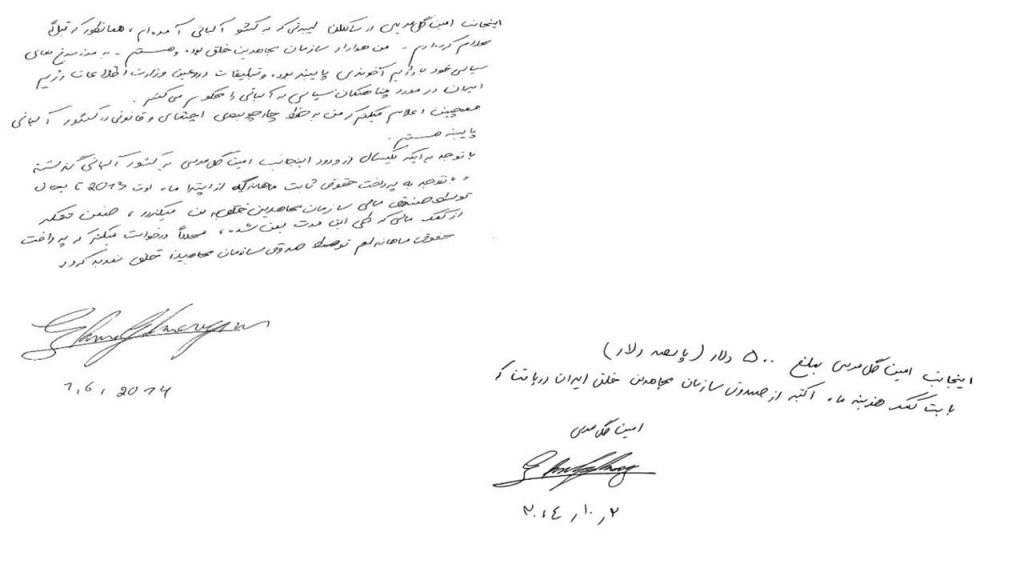 اینجانب امین گل مریمی در کشور آلبانی آمده‌ام، همانطور که قبلاً
اعلام کرده‌ام - من هوادار سازمان مجاهدین خلق بوده و هستم - به مرزسرخ های
سیاسی خود با رژیم آخوندی پایبند بوده و تبلیغات دروغین وزارت اطلاعات رژیم
ایران در مورد پناهندگان سیاسی در آلبانی را محکوم می‌کنم.
همچنین اعلام میکنم که من به حفظ چارچوبهای اجتماعی و قانونی در کشور آلبانی
پایبند هستم.
با توجه به اینکه یکسال از ورود اینجانب امین گل مریمی به کشور آلبانی گذشته
و با توجه به پرداخت حقوق ثابت ماهانه که از ابتدا ماه اوت 2013 تا بحال
توسط صندوق مالی سازمان مجاهدین خلق به من میگردد، ضمن تشکر
از کمک مالی که طی این مدت بمن شده، مجدداً درخواست میکنم که پرداخت
حقوق ماهانه‌ام توسط صندوق سازمان مجاهدین خلق تمدید گردد
1.6.2014
اینجانب امین گل مریمی مبلغ ۵۰۰ دلار (پانصد دلار)
بابت کمک هزینه ماه اکتبر از صندوق سازمان مجاهدین خلق ایران دریافت کردم
امین گل مریمی
۲ر۱۰ر۲۰۱٤